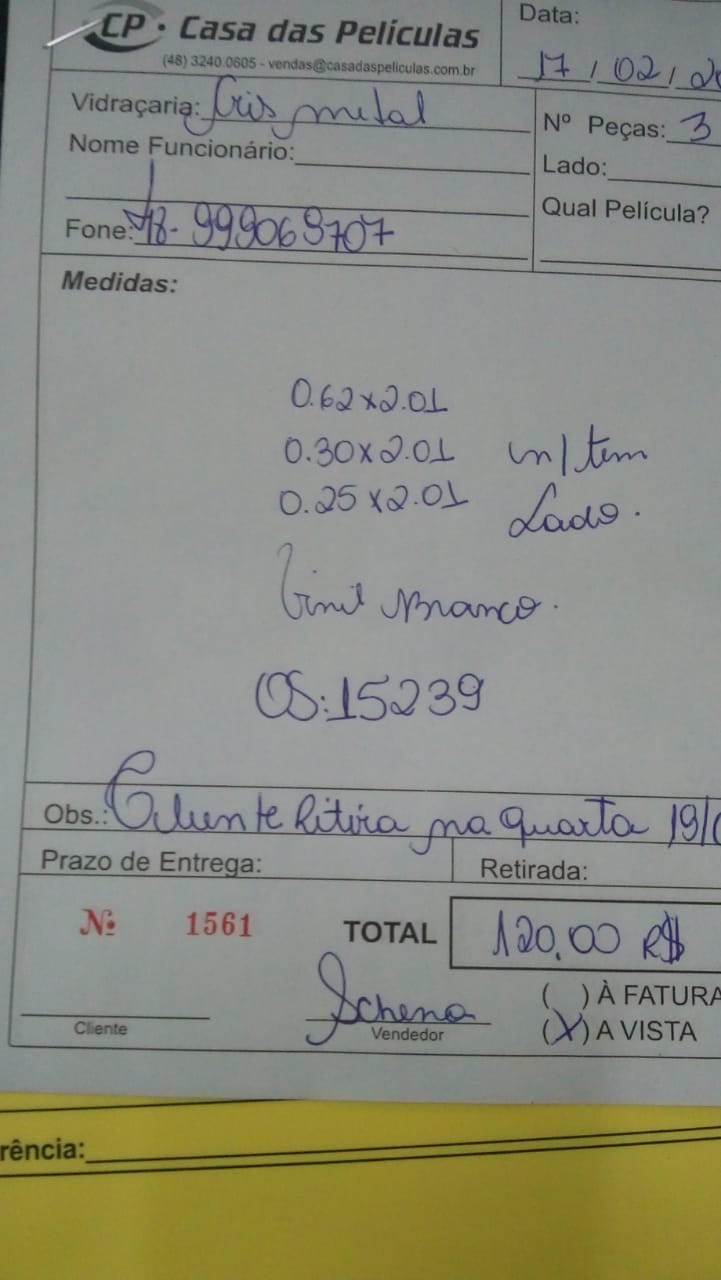 CP · Casa das Películas
(48) 3240.0605 - vendas@casadaspeliculas.com.br
Data:
17 / 02 / 20
Vidraçaria: Cris metal
Nº Peças: 3
Nome Funcionário:
Lado:
Qual Película?
Fone: 48- 999069707
Medidas:
0.62x2.01
0.30x2.01 ñ/tem
0.25x2.01 Lado.
Vinil Branco.
OS:15239
Obs.: Cliente Retira na quarta 19/0
Prazo de Entrega:
Retirada:
Nº 1561
TOTAL 120,00 R$
Schena
Cliente
Vendedor
( ) À FATURA
(X) A VISTA
rência: